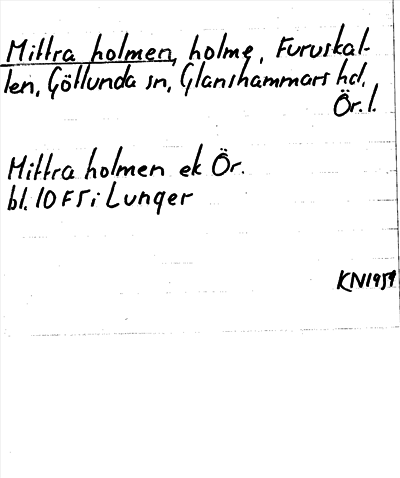 Mittra holmen, holme, Furuskal-
len, Götlunda sn, Glanshammars hd,
Ör. l.
Mittra holmen ek Ör.
bl. 10 F5 i Lunger
KN1959